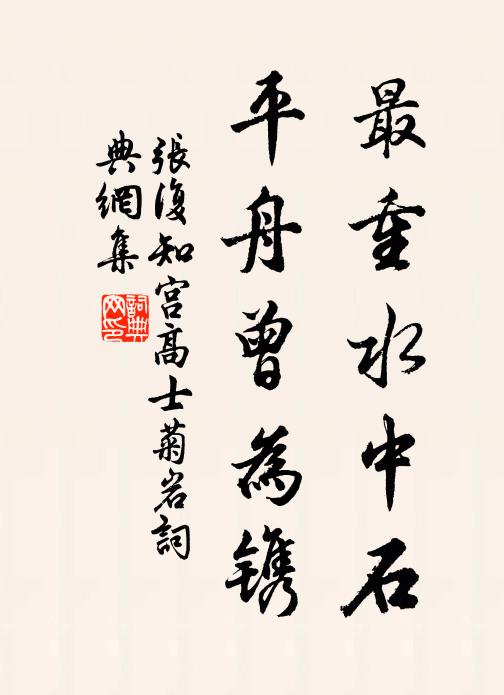 最重水中石
平舟曾為镌
張復知宫高士菊岩詞
典網集
詞典网印